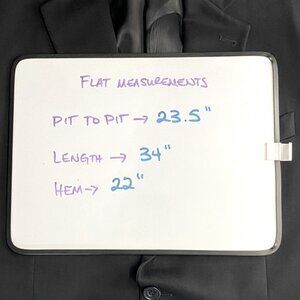 FLAT MEASUREMENTS
PIT TO PIT → 23.5"
LENGTH → 34"
HEM → 22"